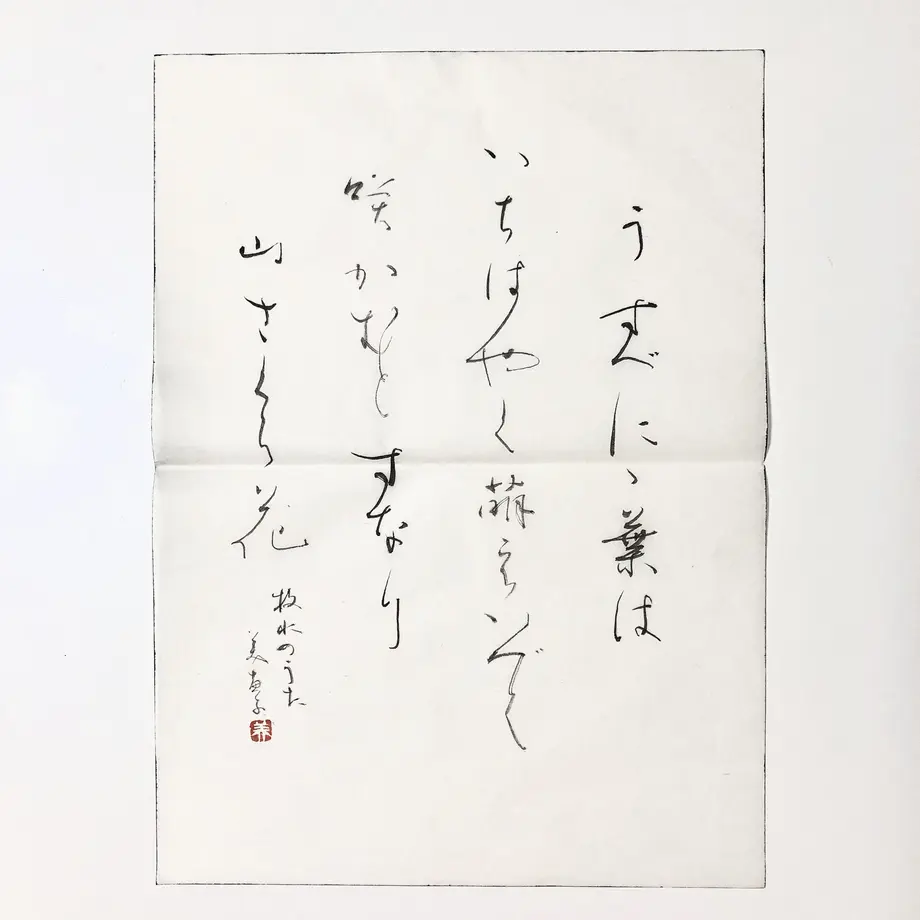 うすべにゝ葉は
いちはやく萌えいでて
咲かむとすなり
山さくら花
牧水のうた
美